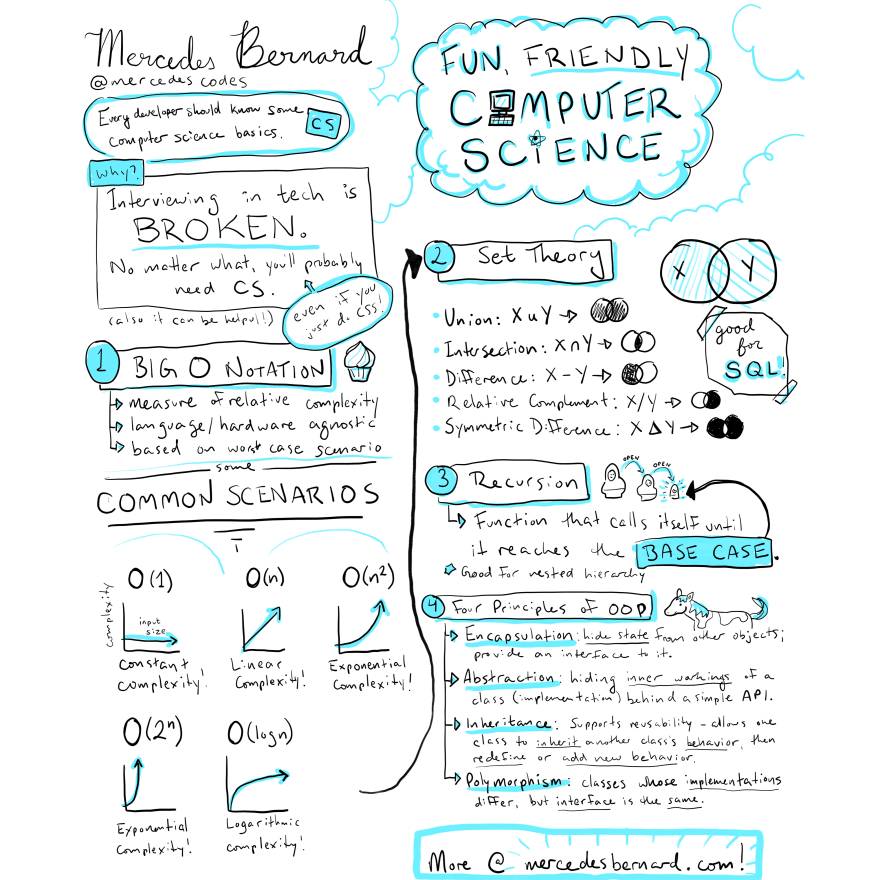 Mercedes Bernard
@mercedescodes
FUN, FRIENDLY
COMPUTER
SCIENCE
Every developer should know some
computer science basics.
CS
Why?
Interviewing in tech is
BROKEN.
No matter what, you'll probably
need CS.
even if you
just do CSS!
(also it can be helpful!)
1 BIG O NOTATION
measure of relative complexity
language/hardware agnostic
based on worst case scenario
some
COMMON SCENARIOS
complexity
O(1)
input
size
Constant
complexity!
O(n)
Linear
Complexity!
O(n²)
Exponential
Complexity!
O(2ⁿ)
Exponential
Complexity!
O(logn)
Logarithmic
complexity!
2 Set Theory
X Y
Union: X ∪ Y →
Intersection: X ∩ Y →
Difference: X - Y →
Relative Complement: X/Y →
Symmetric Difference: X Δ Y →
good
for
SQL!
3 Recursion
OPEN OPEN
Function that calls itself until
it reaches the BASE CASE.
Good for nested hierarchy
4 Four Principles of OOP
Encapsulation: hide state from other objects;
provide an interface to it.
Abstraction: hiding inner workings of a
class (implementation) behind a simple API.
Inheritance: Supports reusability - allows one
class to inherit another class's behavior, then
redefine or add new behavior.
Polymorphism: classes whose implementations
differ, but interface is the same.
More @ mercedesbernard.com!